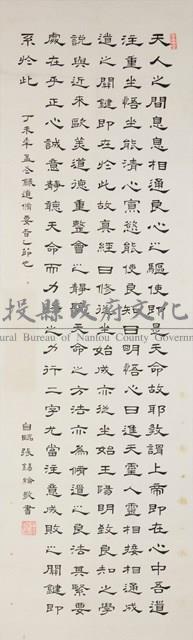 天人之間息息相通良心之驅使即是天命故耶教謂上帝即在心中吾道
注重坐悟坐能清心寡慾能使良知日明悟心日進天靈人靈相接相通成
道之關鍵即在於此故真經曰修從坐始成亦從坐始王陽明致良知之學
說與近來歐美道德重整會之靜聽天命之方法亦為修道之良法其緊要
處在乎正心誠意靜聽天命而力行之力行二字尤當注意成敗之關鍵即
系於此
丁未年孟冬錄道脩要旨乙節也
白鷗張錫綸敬書
投縣政府文化
ural Bureau of Nantou County Governme